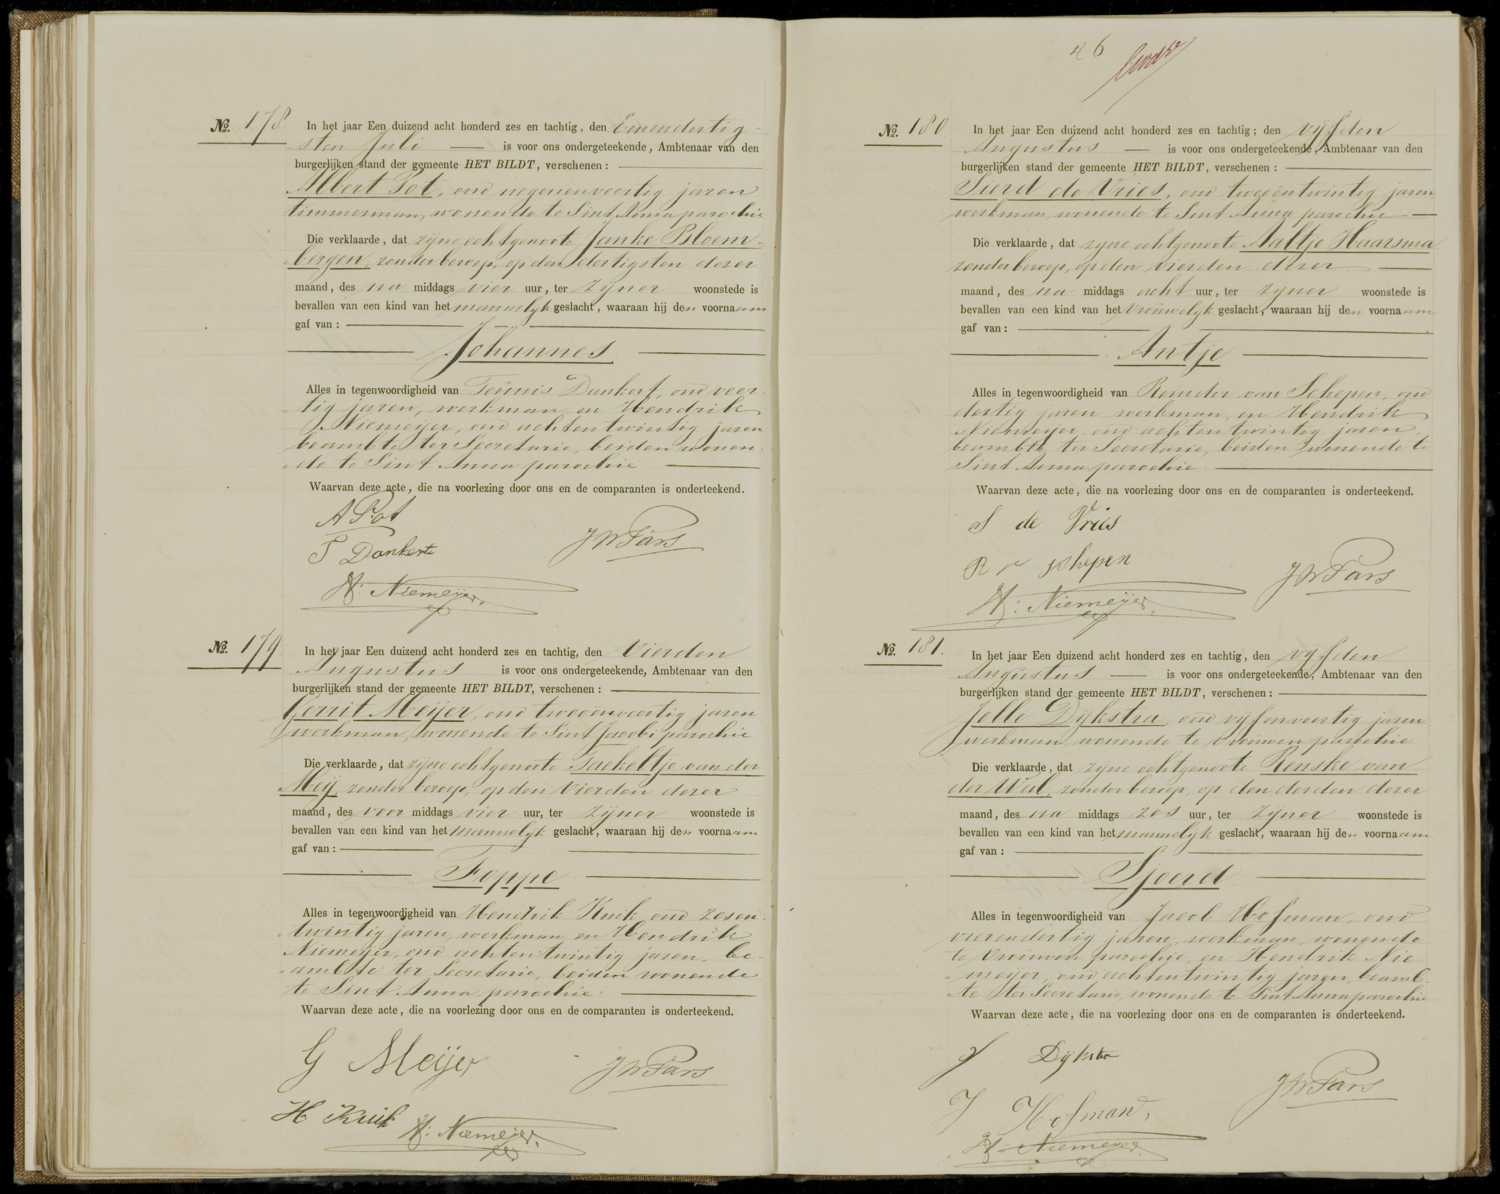 №. 178 In het jaar Een duizend acht honderd zes en tachtig, den Eenendertig-
sten Juli — is voor ons ondergeteekende, Ambtenaar van den
burgerlijken stand der gemeente HET BILDT, verschenen :
Albert Pot, oud negenenveertig jaren
timmerman, wonende te Sint Annaparochie
Die verklaarde, dat zijne echtgenoote Janke Bloem-
bergen, zonder beroep, op den dertigsten dezer
maand, des na middags vier uur, ter zijner woonstede is
bevallen van een kind van het mannelijk geslacht, waaraan hij den voornaam
gaf van :
Johannes
Alles in tegenwoordigheid van Teunis Dankert, oud veer-
tig jaren, werkman, en Hendrik
Niemeijer, oud achtentwintig jaren
beambte ter Secretarie, beiden wonen-
de te Sint Anna parochie
Waarvan deze acte, die na voorlezing door ons en de comparanten is onderteekend.
A Pot
T Dankert
JW Pars
H: Niemeijer.
№. 179 In het jaar Een duizend acht honderd zes en tachtig, den Vierden
Augustus is voor ons ondergeteekende, Ambtenaar van den
burgerlijken stand der gemeente HET BILDT, verschenen :
Gerrit Meijer, oud tweeenveertig jaren
werkman, wonende te Sint Jacobi parochie
Die verklaarde, dat zijne echtgenoote Taekeltje van der
Meij, zonder beroep, op den vierden dezer
maand, des voor middags vier uur, ter zijner woonstede is
bevallen van een kind van het mannelijk geslacht, waaraan hij den voornaam
gaf van :
Foppe
Alles in tegenwoordigheid van Hendrik Kuik, oud zesen-
twintig jaren, werkman, en Hendrik
Niemeijer, oud achtentwintig jaren, be-
ambte ter Secretarie, beiden wonende
te Sint Anna parochie.
Waarvan deze acte, die na voorlezing door ons en de comparanten is onderteekend.
G Meijer
JW Pars
H Kuik
H: Niemeijer.
46
№. 180 In het jaar Een duizend acht honderd zes en tachtig ; den vijfden
Augustus — is voor ons ondergeteekende, Ambtenaar van den
burgerlijken stand der gemeente HET BILDT, verschenen :
Sierd de Vries, oud tweeentwintig jaren
werkman, wonende te Sint Anna parochie
Die verklaarde, dat zijne echtgenoote Aaltje Haarsma
zonder beroep, op den vierden dezer
maand, des na middags acht uur, ter zijner woonstede is
bevallen van een kind van het vrouwelijk geslacht, waaraan hij den voornaam
gaf van :
Antje
Alles in tegenwoordigheid van Reinder van Schepen, oud
dertig jaren werkman, en Hendrik
Niemeijer, oud achtentwintig jaren,
beambte ter Secretarie, beiden wonende te
Sint Anna parochie
Waarvan deze acte, die na voorlezing door ons en de comparanten is onderteekend.
S de Vries
R v schepen
JW Pars
H: Niemeijer.
№. 181. In het jaar Een duizend acht honderd zes en tachtig, den vijfden
Augustus — is voor ons ondergeteekende, Ambtenaar van den
burgerlijken stand der gemeente HET BILDT, verschenen :
Jelle Dijkstra, oud vijfenveertig jaren
werkman, wonende te Vrouwen parochie
Die verklaarde, dat zijne echtgenoote Renske van
der Wiel, zonder beroep, op den derden dezer
maand, des na middags zes uur, ter zijner woonstede is
bevallen van een kind van het mannelijk geslacht, waaraan hij den voornaam
gaf van :
Sjoerd
Alles in tegenwoordigheid van Jacob Hofman, oud
vierendertig jaren, werkman, wonende
te Vrouwen parochie, en Hendrik Nie-
meijer, oud achtentwintig jaren, beamb-
te ter Secretarie, wonende te Sint Anna parochie
Waarvan deze acte, die na voorlezing door ons en de comparanten is onderteekend.
J Dijkstra
JW Pars
J Hofman,
H: Niemeijer.